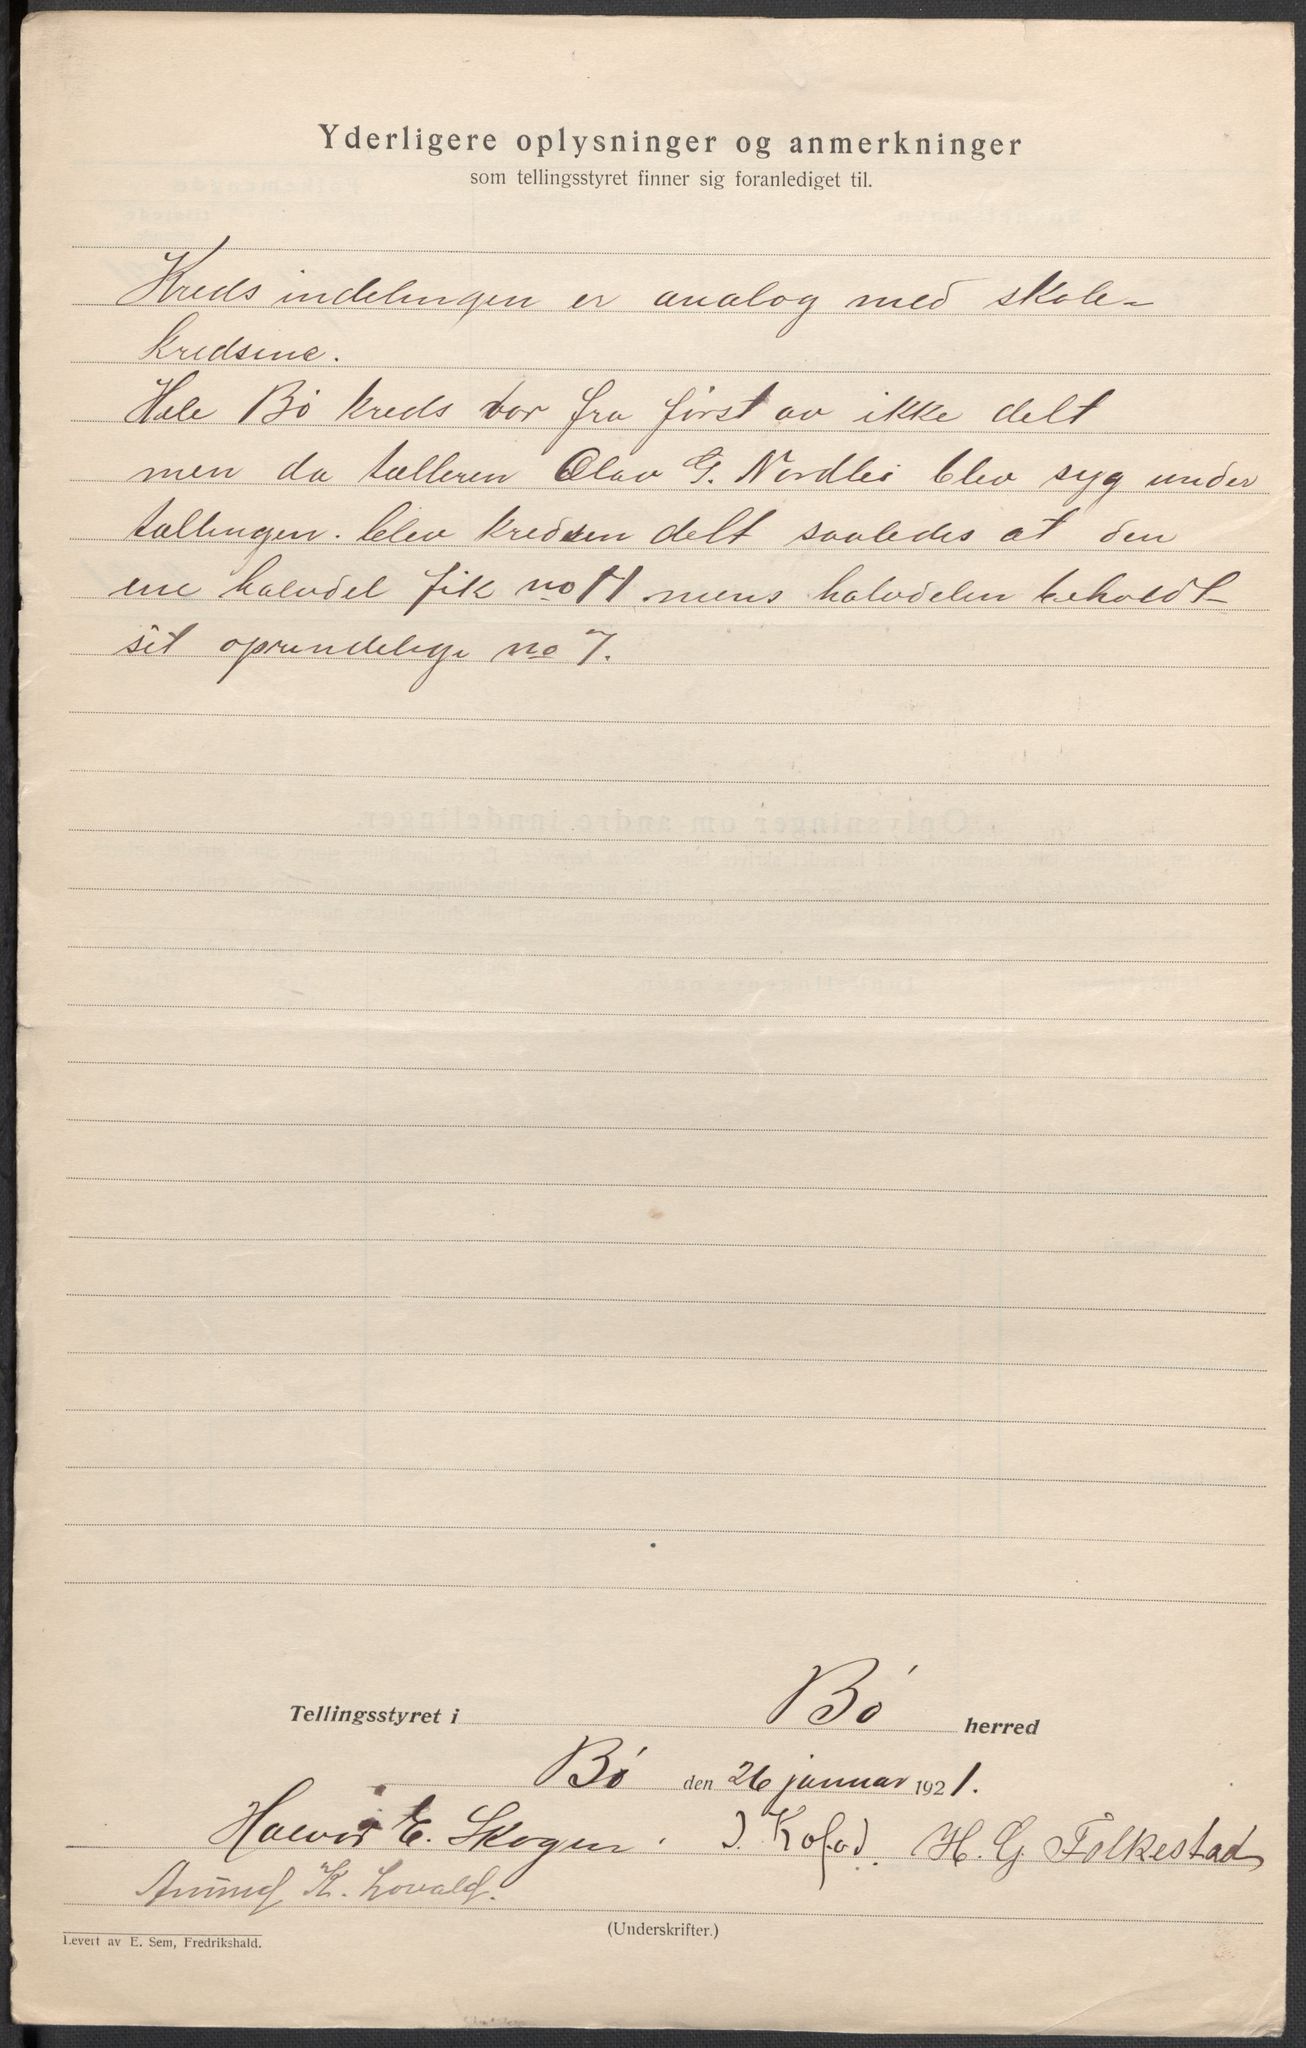 Yderligere oplysninger og anmerkninger
som tellingsstyret finner sig foranlediget til.
Kredsindelingen er analog med skole-
kredsene.
Hele Bø kreds var fra først av ikke delt
men da tælleren Olav G. Nordbø blev syg under
tællingen. blev kredsen delt saaledes at den
ene halvdel fik no 11 mens halvdelen beholdt
sit oprindelige no 7.
Tellingsstyret i Bø herred
Bø den 26 januar 1921.
Halvor E. Skogen. J. Kofod. H. G. Folkestad
Anund K. Lovald.
(Underskrifter.)
Levert av E. Sem, Fredrikshald.